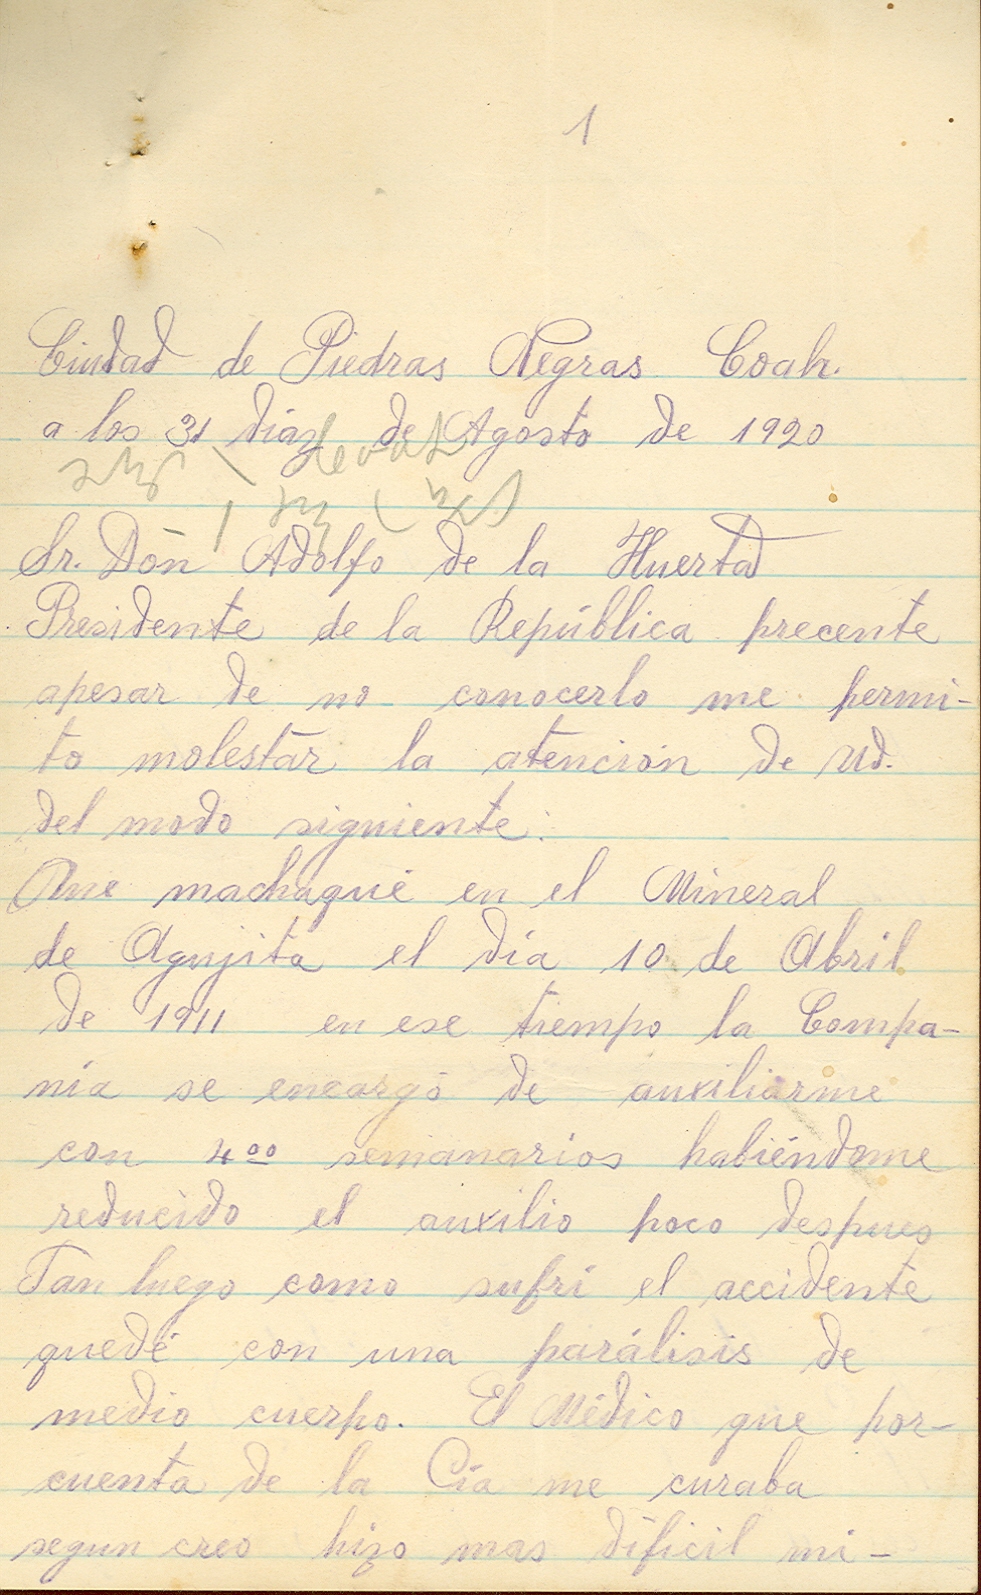 1
Ciudad de Piedras Negras Coah.
a los 31 diaz de Agosto de 1920
Sr. Don Adolfo de la Huerta
Presidente de la República precente
apesar de no conocerlo me permi-
to molestar la atención de Ud.
del modo siguiente:
Que machuqué en el Mineral
de Agujita el día 10 de Abril
de 1911 en ese tiempo la Compa-
nía se encargó de auxiliarme
con 4oo semanarios habiéndome
reducido el auxilio poco despues
Tan luego como sufrí el accidente
quedé con una parálisis de
medio cuerpo. El Médico que por-
cuenta de la Cía me curaba
segun creo hizo mas dificil mi-